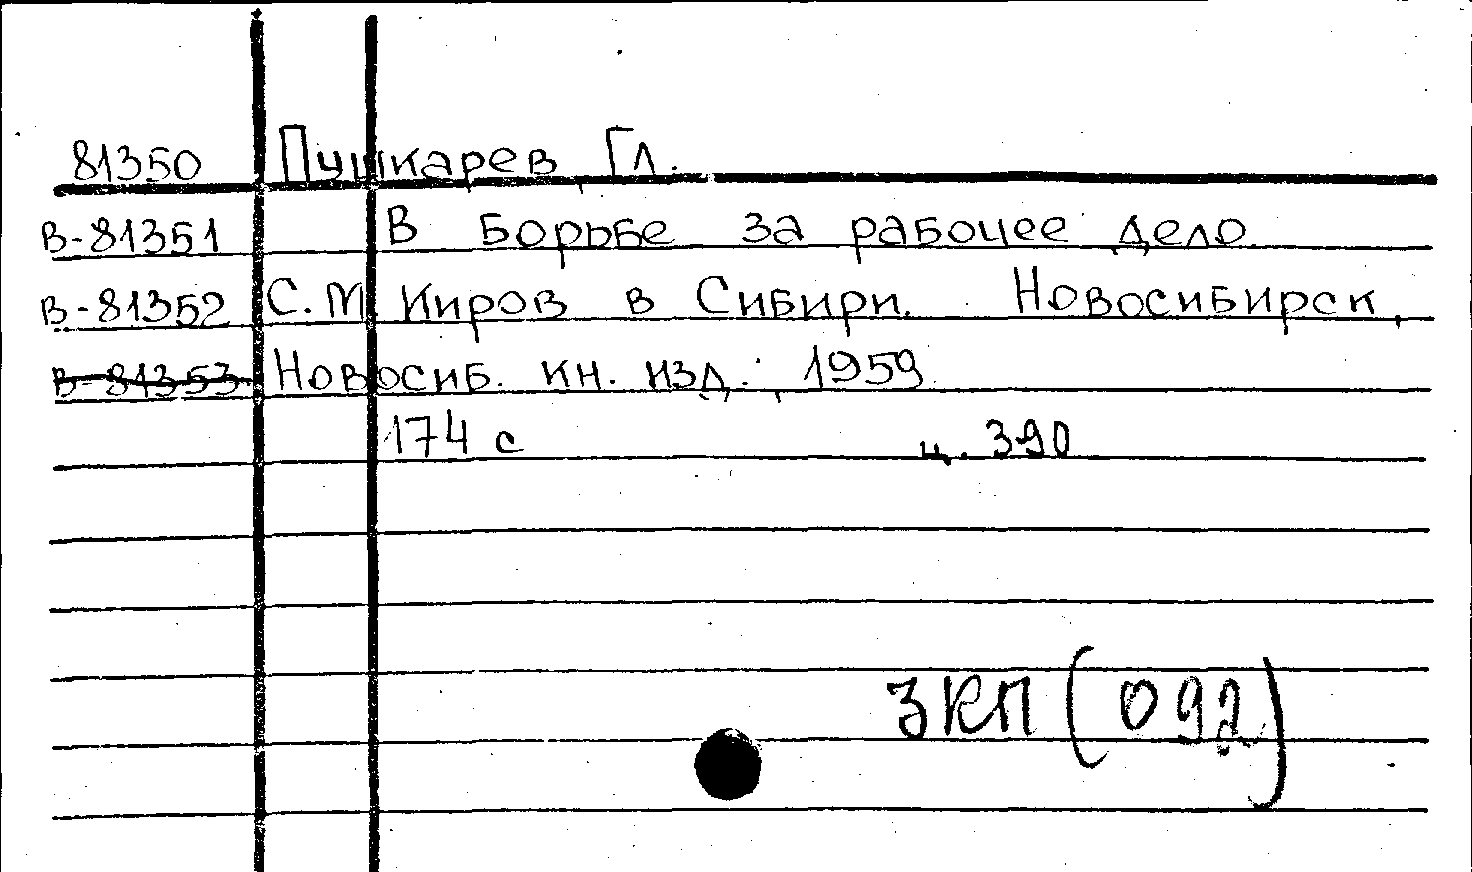 81350 Пушкарев, Гл.
В-81351 В борьбе за рабочее дело
В-81352 С.М. Киров в Сибири. Новосибирск,
В-81353 Новосиб. кн. изд., 1959
174 с ц. 390
3КП (092)